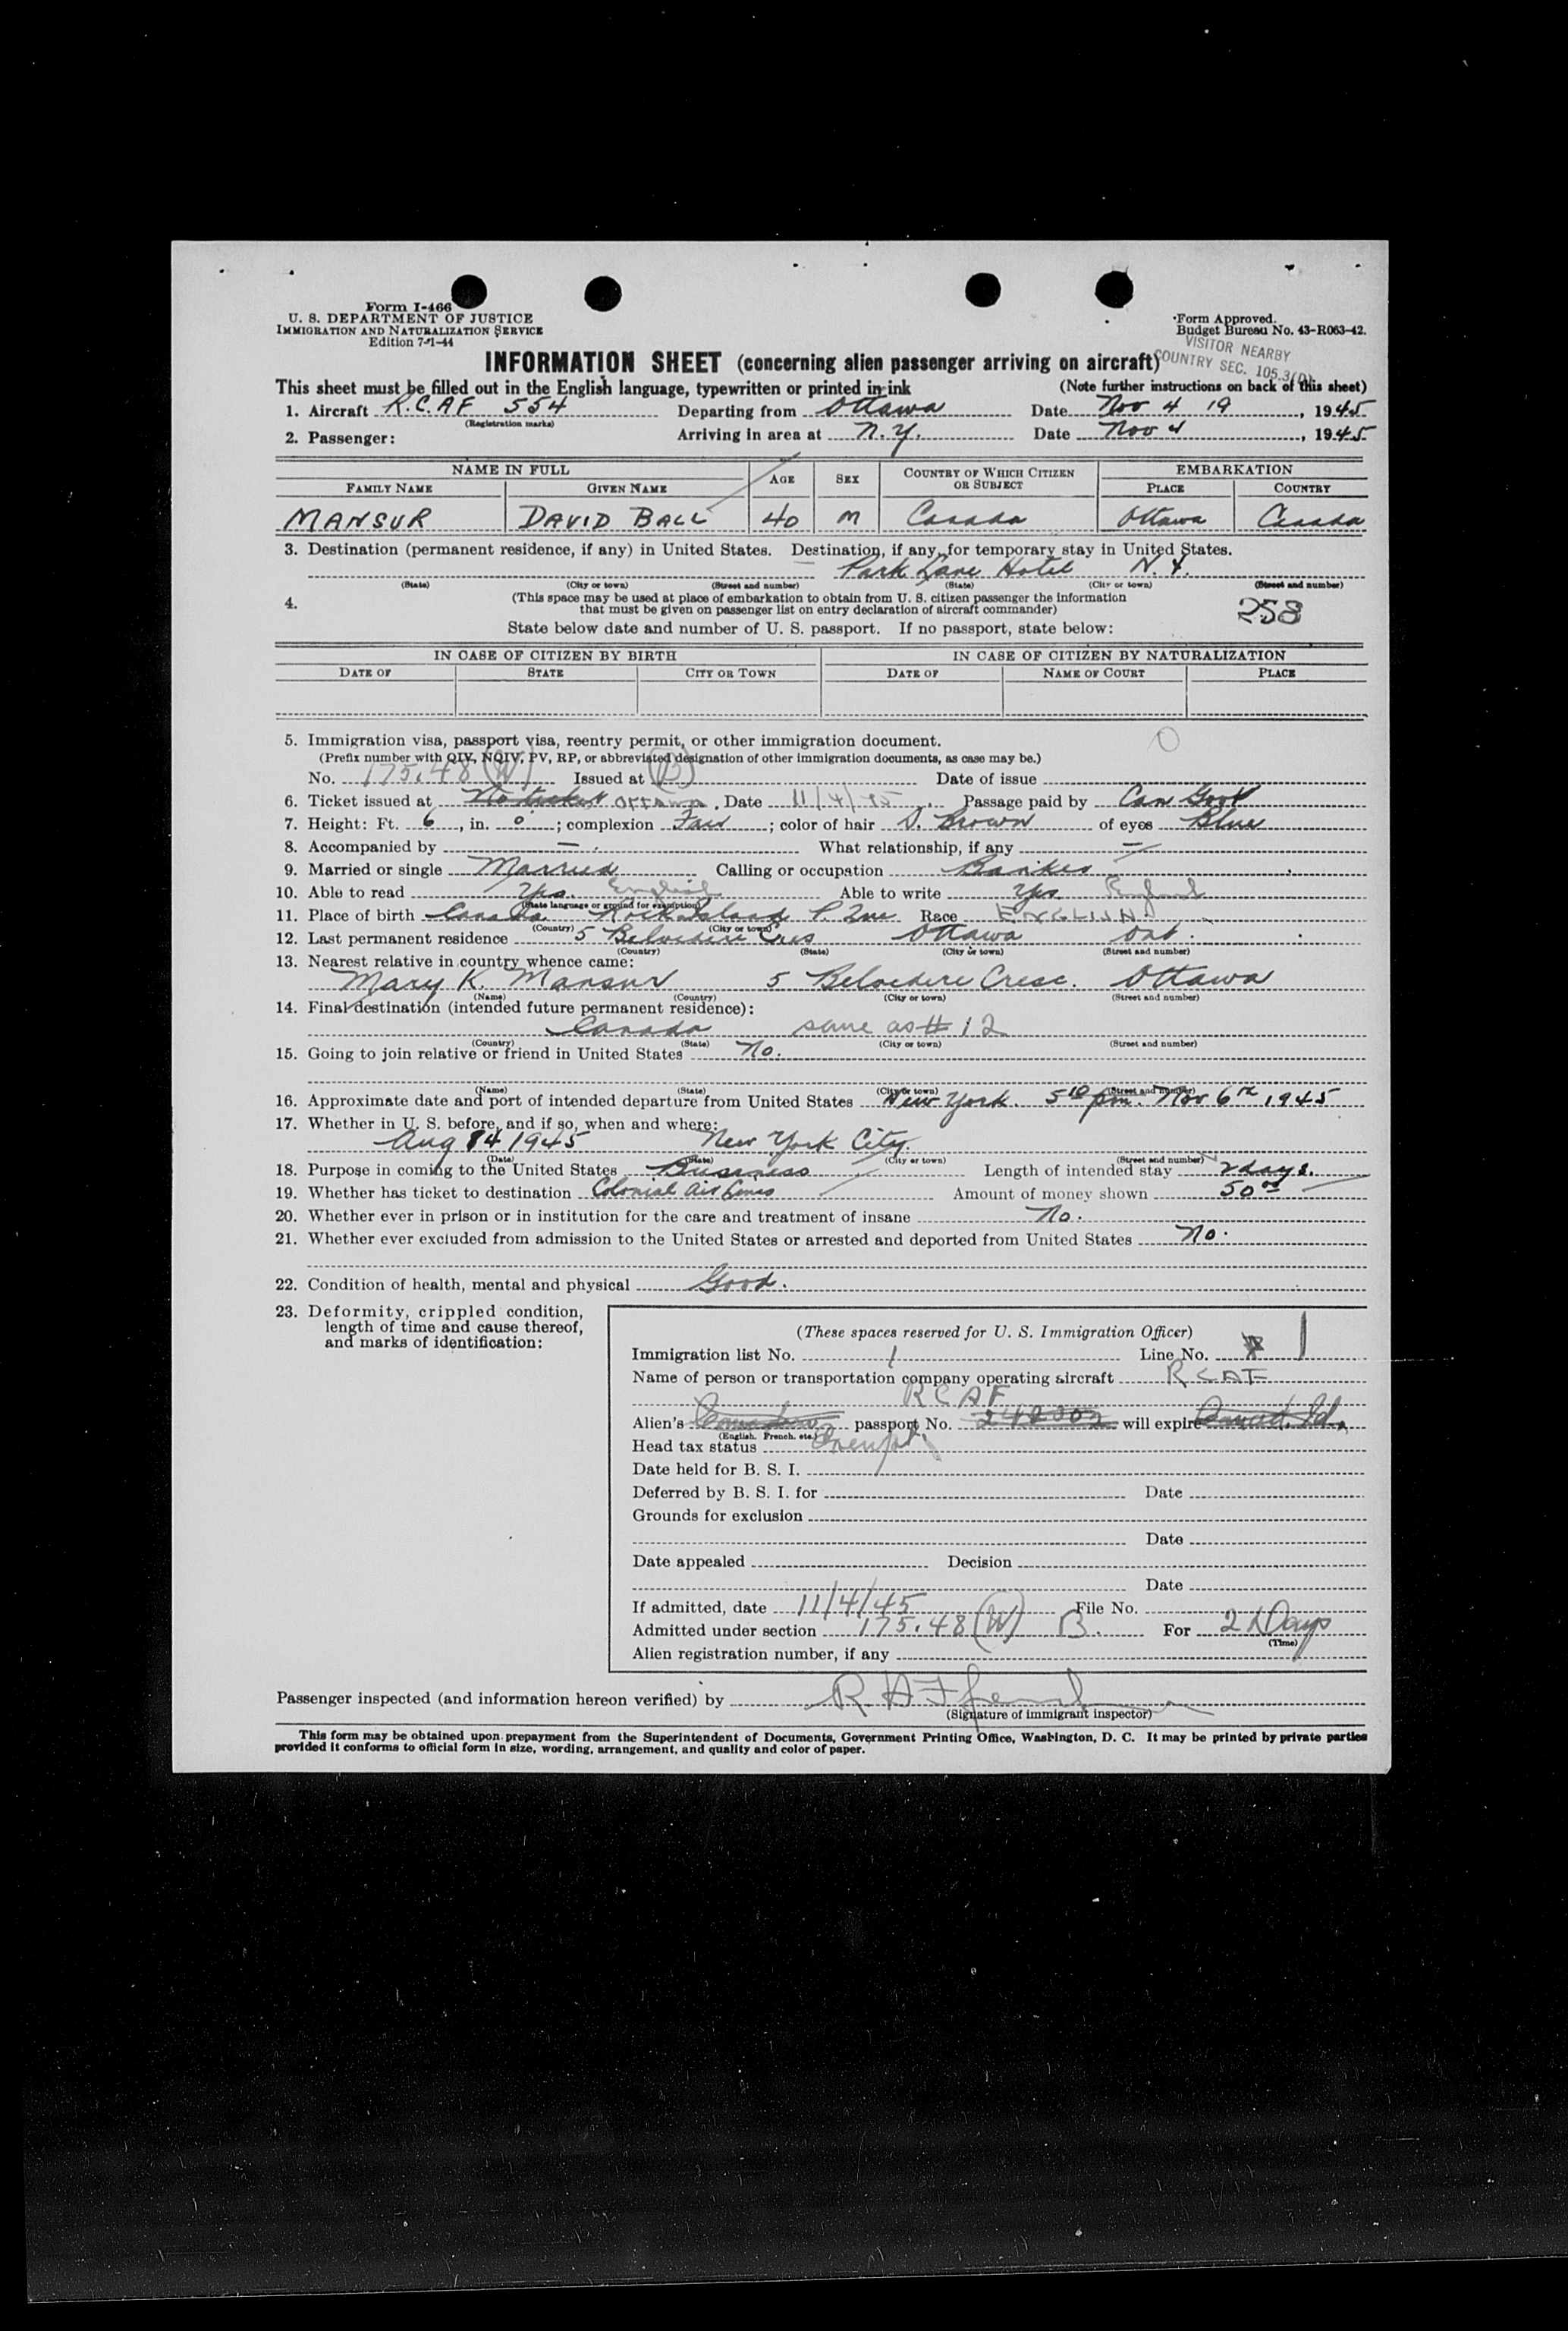 Form I-466
U. S. DEPARTMENT OF JUSTICE
IMMIGRATION AND NATURALIZATION SERVICE
Edition 7-1-44
Form Approved.
Budget Bureau No. 43-R063-42.
VISITOR NEARBY
COUNTRY SEC. 105.3(D)
INFORMATION SHEET (concerning alien passenger arriving on aircraft)
This sheet must be filled out in the English language, typewritten or printed in ink (Note further instructions on back of this sheet)
1. Aircraft R.C.A.F 554 Departing from Ottawa Date Nov 4 19, 1945
(Registration marks)
2. Passenger: Arriving in area at N.Y. Date Nov 4, 1945
NAME IN FULL AGE SEX COUNTRY OF WHICH CITIZEN OR SUBJECT EMBARKATION
FAMILY NAME GIVEN NAME PLACE COUNTRY
MANSUR DAVID BALL 40 M Canada Ottawa Canada
3. Destination (permanent residence, if any) in United States. Destination, if any, for temporary stay in United States.
Park Lane Hotel N.Y.
(State) (City or town) (Street and number) (State) (City or town) (Street and number)
4. (This space may be used at place of embarkation to obtain from U. S. citizen passenger the information
that must be given on passenger list on entry declaration of aircraft commander)
258
State below date and number of U. S. passport. If no passport, state below:
IN CASE OF CITIZEN BY BIRTH IN CASE OF CITIZEN BY NATURALIZATION
DATE OF STATE CITY OR TOWN DATE OF NAME OF COURT PLACE
5. Immigration visa, passport visa, reentry permit, or other immigration document.
(Prefix number with QIV, NQIV, PV, RP, or abbreviated designation of other immigration documents, as case may be.)
No. 175.48 (W) Issued at (B) Date of issue
6. Ticket issued at No ticket Ottawa. Date 11/4/45. Passage paid by Can Govt
7. Height: Ft. 6, in. 0; complexion Fair; color of hair D. Brown of eyes Blue
8. Accompanied by — What relationship, if any —
9. Married or single Married Calling or occupation Banker
10. Able to read Yes. English Able to write Yes
(State language or ground for exemption)
11. Place of birth Canada Rock Island P. Que Race ENGLISH
(Country) (City or town)
12. Last permanent residence 5 Belvedere Cres Ottawa Ont.
(Country) (State) (City or town) (Street and number)
13. Nearest relative in country whence came:
Mary K. Mansur 5 Belvedere Cresc. Ottawa
(Name) (Country) (City or town) (Street and number)
14. Final destination (intended future permanent residence):
Canada same as # 12
(Country) (State) (City or town) (Street and number)
15. Going to join relative or friend in United States No.
(Name) (State) (City or town) (Street and number)
16. Approximate date and port of intended departure from United States New York. 5 10 pm. Nov 6th 1945
17. Whether in U. S. before, and if so, when and where:
Aug 14 1945 New York City.
(Date) (State) (City or town) (Street and number)
18. Purpose in coming to the United States Business Length of intended stay 2 days.
19. Whether has ticket to destination Colonial Air Lines Amount of money shown 50 00
20. Whether ever in prison or in institution for the care and treatment of insane No.
21. Whether ever excluded from admission to the United States or arrested and deported from United States No.
22. Condition of health, mental and physical Good.
23. Deformity, crippled condition,
length of time and cause thereof,
and marks of identification:
(These spaces reserved for U. S. Immigration Officer)
Immigration list No. 1 Line No. 1
Name of person or transportation company operating aircraft RCAF
RCAF
Alien's passport No. 242002 will expire
(English, French, etc.)
Head tax status Exempt
Date held for B. S. I.
Deferred by B. S. I. for Date
Grounds for exclusion
Date
Date appealed Decision
Date
If admitted, date 11/4/45 File No.
Admitted under section 175.48 (W) B. For 2 Days
(Time)
Alien registration number, if any
Passenger inspected (and information hereon verified) by
(Signature of immigrant inspector)
This form may be obtained upon prepayment from the Superintendent of Documents, Government Printing Office, Washington, D. C. It may be printed by private parties
provided it conforms to official form in size, wording, arrangement, and quality and color of paper.